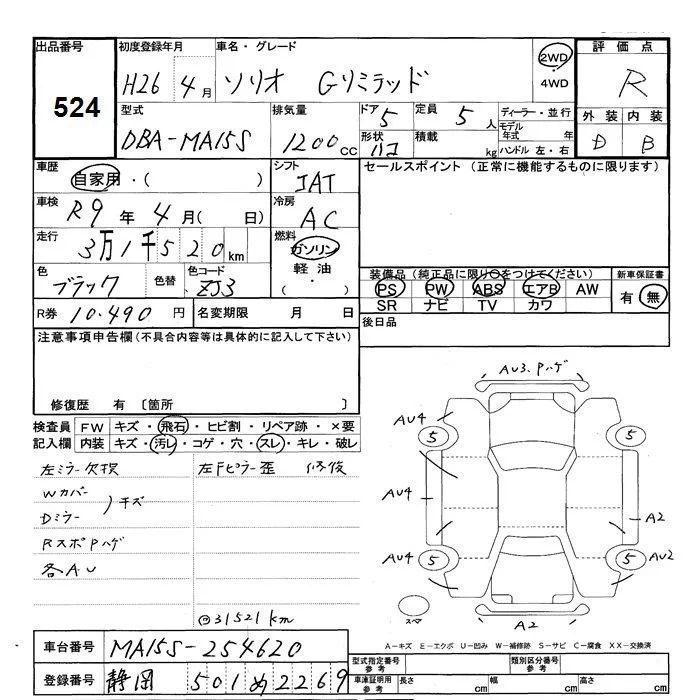 出品番号
524
初度登録年月
H26 4月
車名・グレード
ソリオ Gリミテッド
2WD・4WD
評価点
R
型式
DBA-MA15S
排気量
1200cc
ドア 5
形状 ハコ
定員 5人
積載 kg
ディーラー・並行
モデル年式 年
ハンドル 左・右
外装 内装
D B
車歴
自家用・( )
シフト
IAT
セールスポイント (正常に機能するものに限ります)
車検
R9年 4月( 日)
冷房
AC
走行
3万1千520km
燃料
ガソリン
軽油
・( )
色
ブラック
色替
色コード
ZJ3
装備品(純正品に限り○をつけてください)
PS PW ABS エアB AW
SR ナビ TV カワ
新車保証書
有 無
R券 10,490円
名変期限 月 日
後日品
注意事項申告欄(不具合内容等は具体的に記入して下さい)
修復歴 有 〔箇所 〕
検査員記入欄
FW キズ・飛石・ヒビ割・リペア跡・×要
内装 キズ・汚レ・コゲ・穴・スレ・キレ・破レ
左ミラー欠損 左Fピラー歪 修復
Wカバー
Dミラー
)キズ
RスポPハゲ
各AU
31521km
AU3.Pハゲ
AU4
5 5
AU4
A2
AU4
5 5
AU2
スマ
A2
A-キズ E-エクボ U-凹み W-補修跡 S-サビ C-腐食 XX-交換済
車台番号 MA15S-254620
登録番号 静岡 501 め 2269
型式指定番号 参考
類別区分番号 参考
車庫証明用 参考
長さ cm 幅 cm 高さ cm